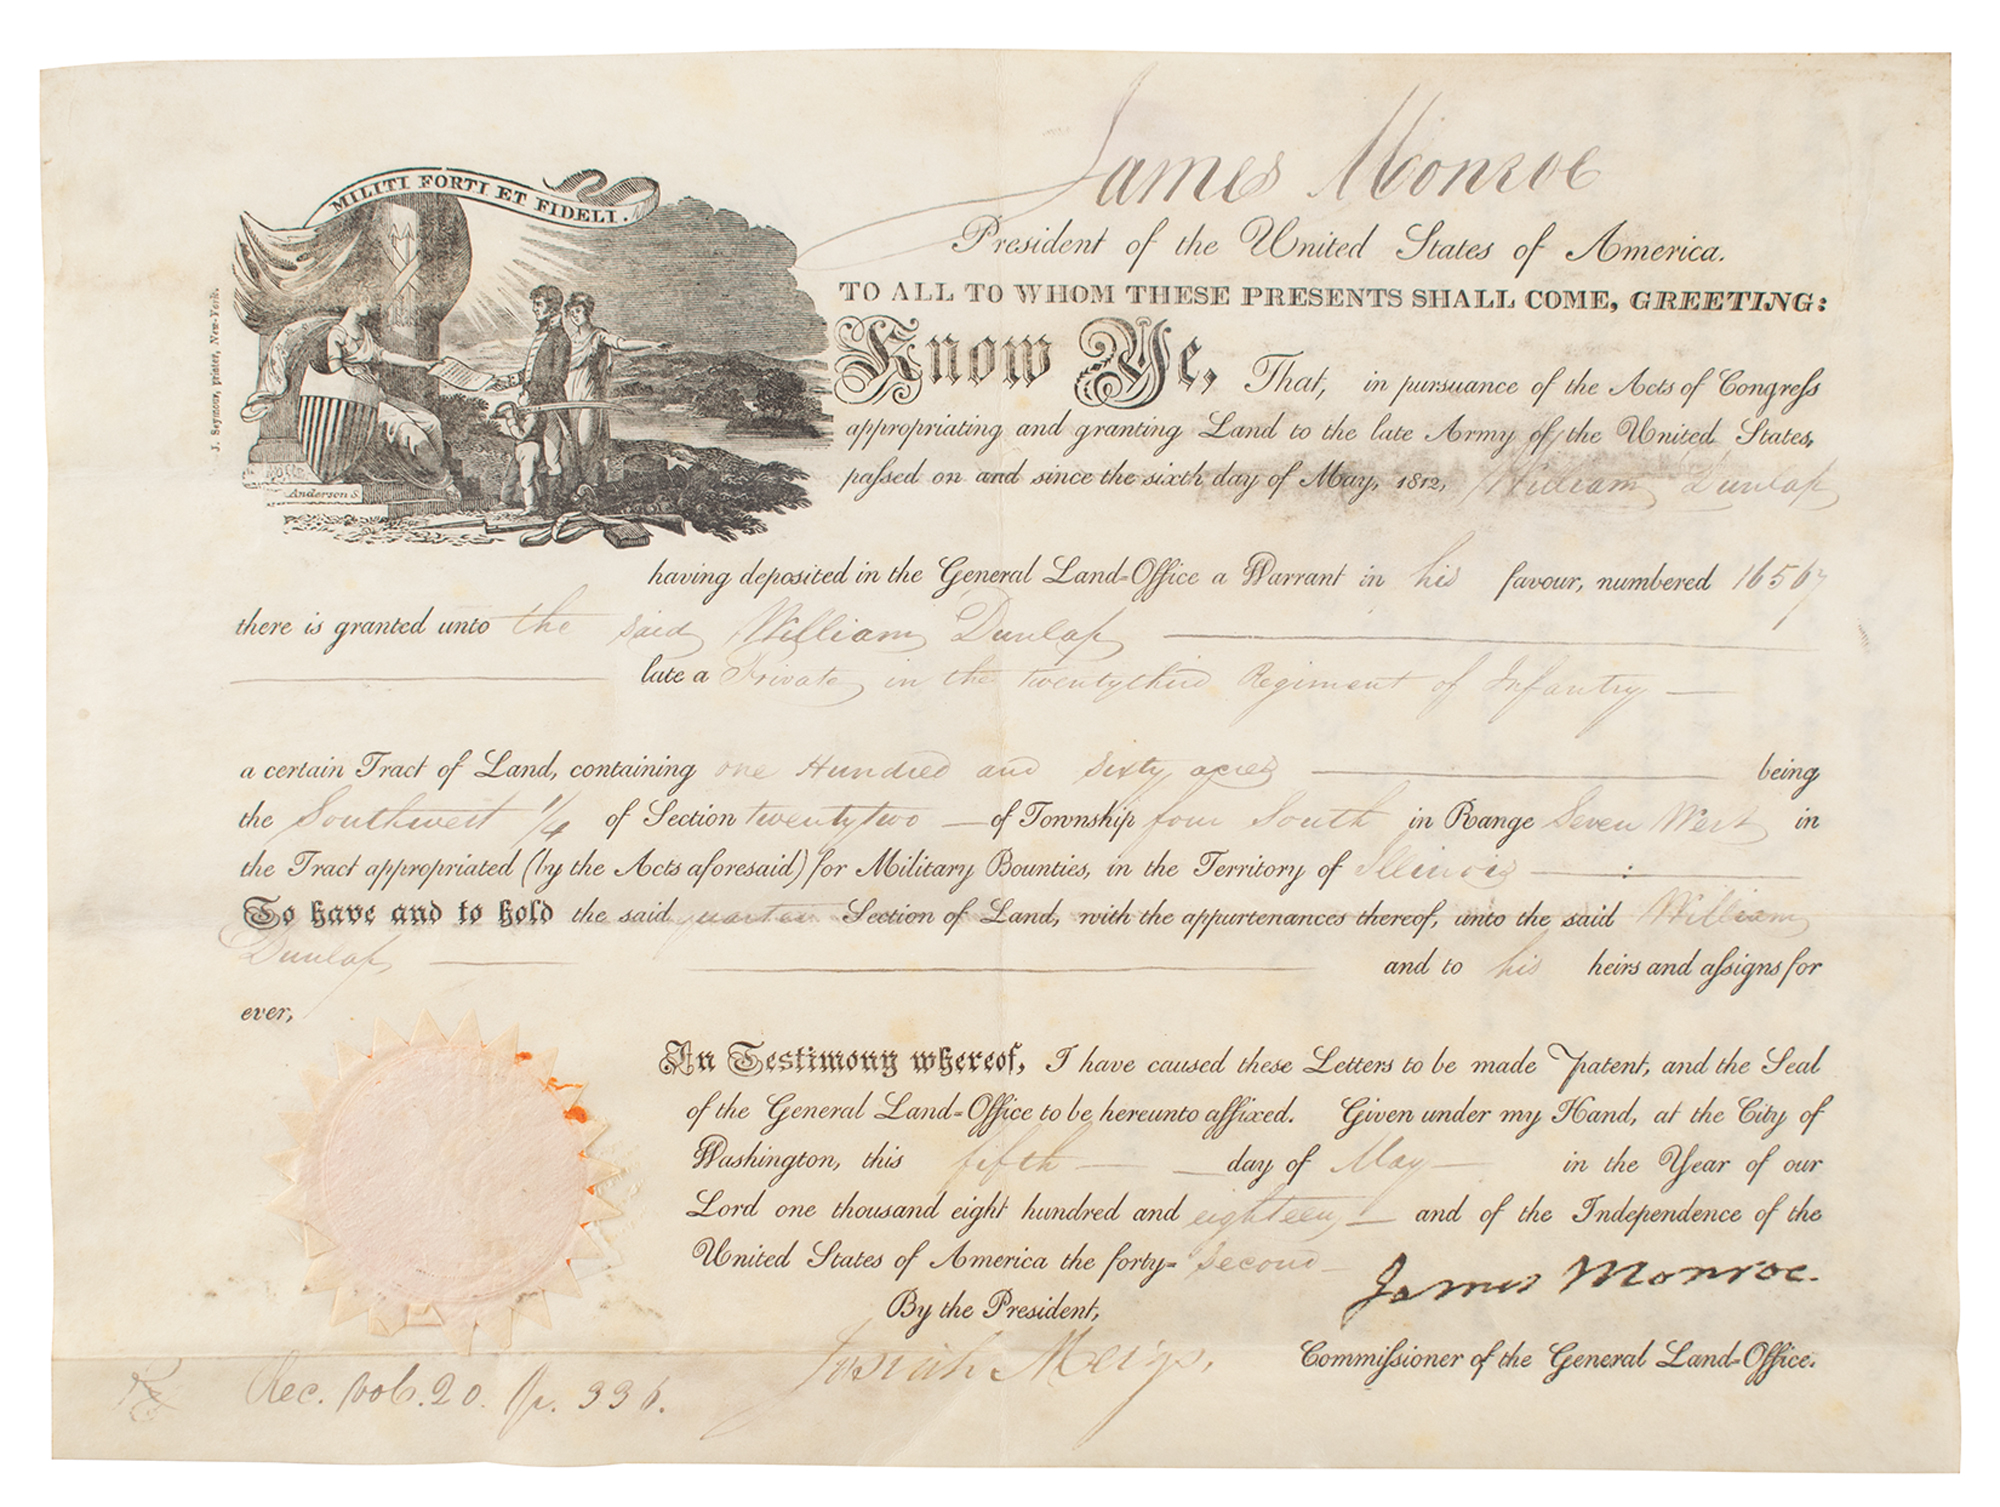 MILITI FORTI ET FIDELI.
J. Seymour, printer, New-York.
Anderson S.
James Monroe
President of the United States of America.
TO ALL TO WHOM THESE PRESENTS SHALL COME, GREETING:
Know Ye, That, in pursuance of the Acts of Congreſs
appropriating and granting Land to the late Army of the United States,
paſsed on and since the sixth day of May, 1812, William Dunlap
having deposited in the General Land-Office a Warrant in his favour, numbered 16567
there is granted unto the said William Dunlap
late a Private in the twentythird Regiment of Infantry
a certain Tract of Land, containing one Hundred and sixty acres being
the Southwest 1/4 of Section twentytwo of Township four South in Range Seven West in
the Tract appropriated (by the Acts aforesaid) for Military Bounties, in the Territory of Illinois :
To have and to hold the said quarter Section of Land, with the appurtenances thereof, unto the said William
Dunlap, and to his heirs and aſsigns for
ever,
In Testimony whereof, I have caused these Letters to be made Patent, and the Seal
of the General Land-Office to be hereunto affixed. Given under my Hand, at the City of
Washington, this fifth day of May in the Year of our
Lord one thousand eight hundred and eighteen, and of the Independence of the
United States of America the forty-second
James Monroe.
By the President,
Josiah Meigs, Commiſsioner of the General Land-Office.
Rec. vol. 20. p. 336.